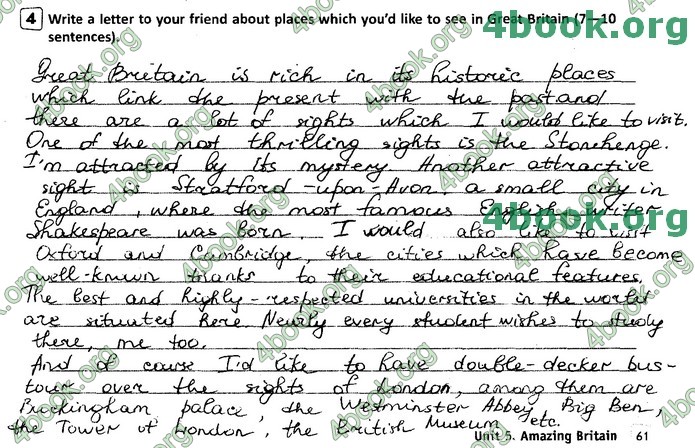 4 Write a letter to your friend about places which you'd like to see in Great Britain (7—10
sentences).
4book.org
Great Britain is rich in its historic places
which link the present with the past and
there are a lot of sights which I would like to visit.
One of the most thrilling sights is the Stonehenge.
I'm attracted by its mystery Another attractive
sight is Stratford-upon-Avon, a small city in
England, where the most famous English writer
4book.org
Shakespeare was born. I would also like to visit
Oxford and Cambridge, the cities which have become
well-known thanks to their educational features.
The best and highly-respected universities in the world
are situated here. Nearly every student wishes to study
there, me too.
And of course I'd like to have double-decker bus-
tour over the sights of London, among them are
Buckingham palace, the Westminster Abbey, Big Ben,
the Tower of London, the British Museum etc.
Unit 5. Amazing Britain 61